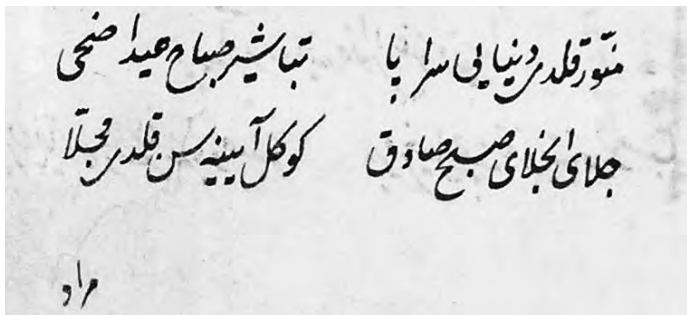 منّور قلدی دنیایی سراپا تباشیر صباح عید اضحی
جلای انجلای صبح صادق کوکل آیینه سن قلدی مجلّا
مراد